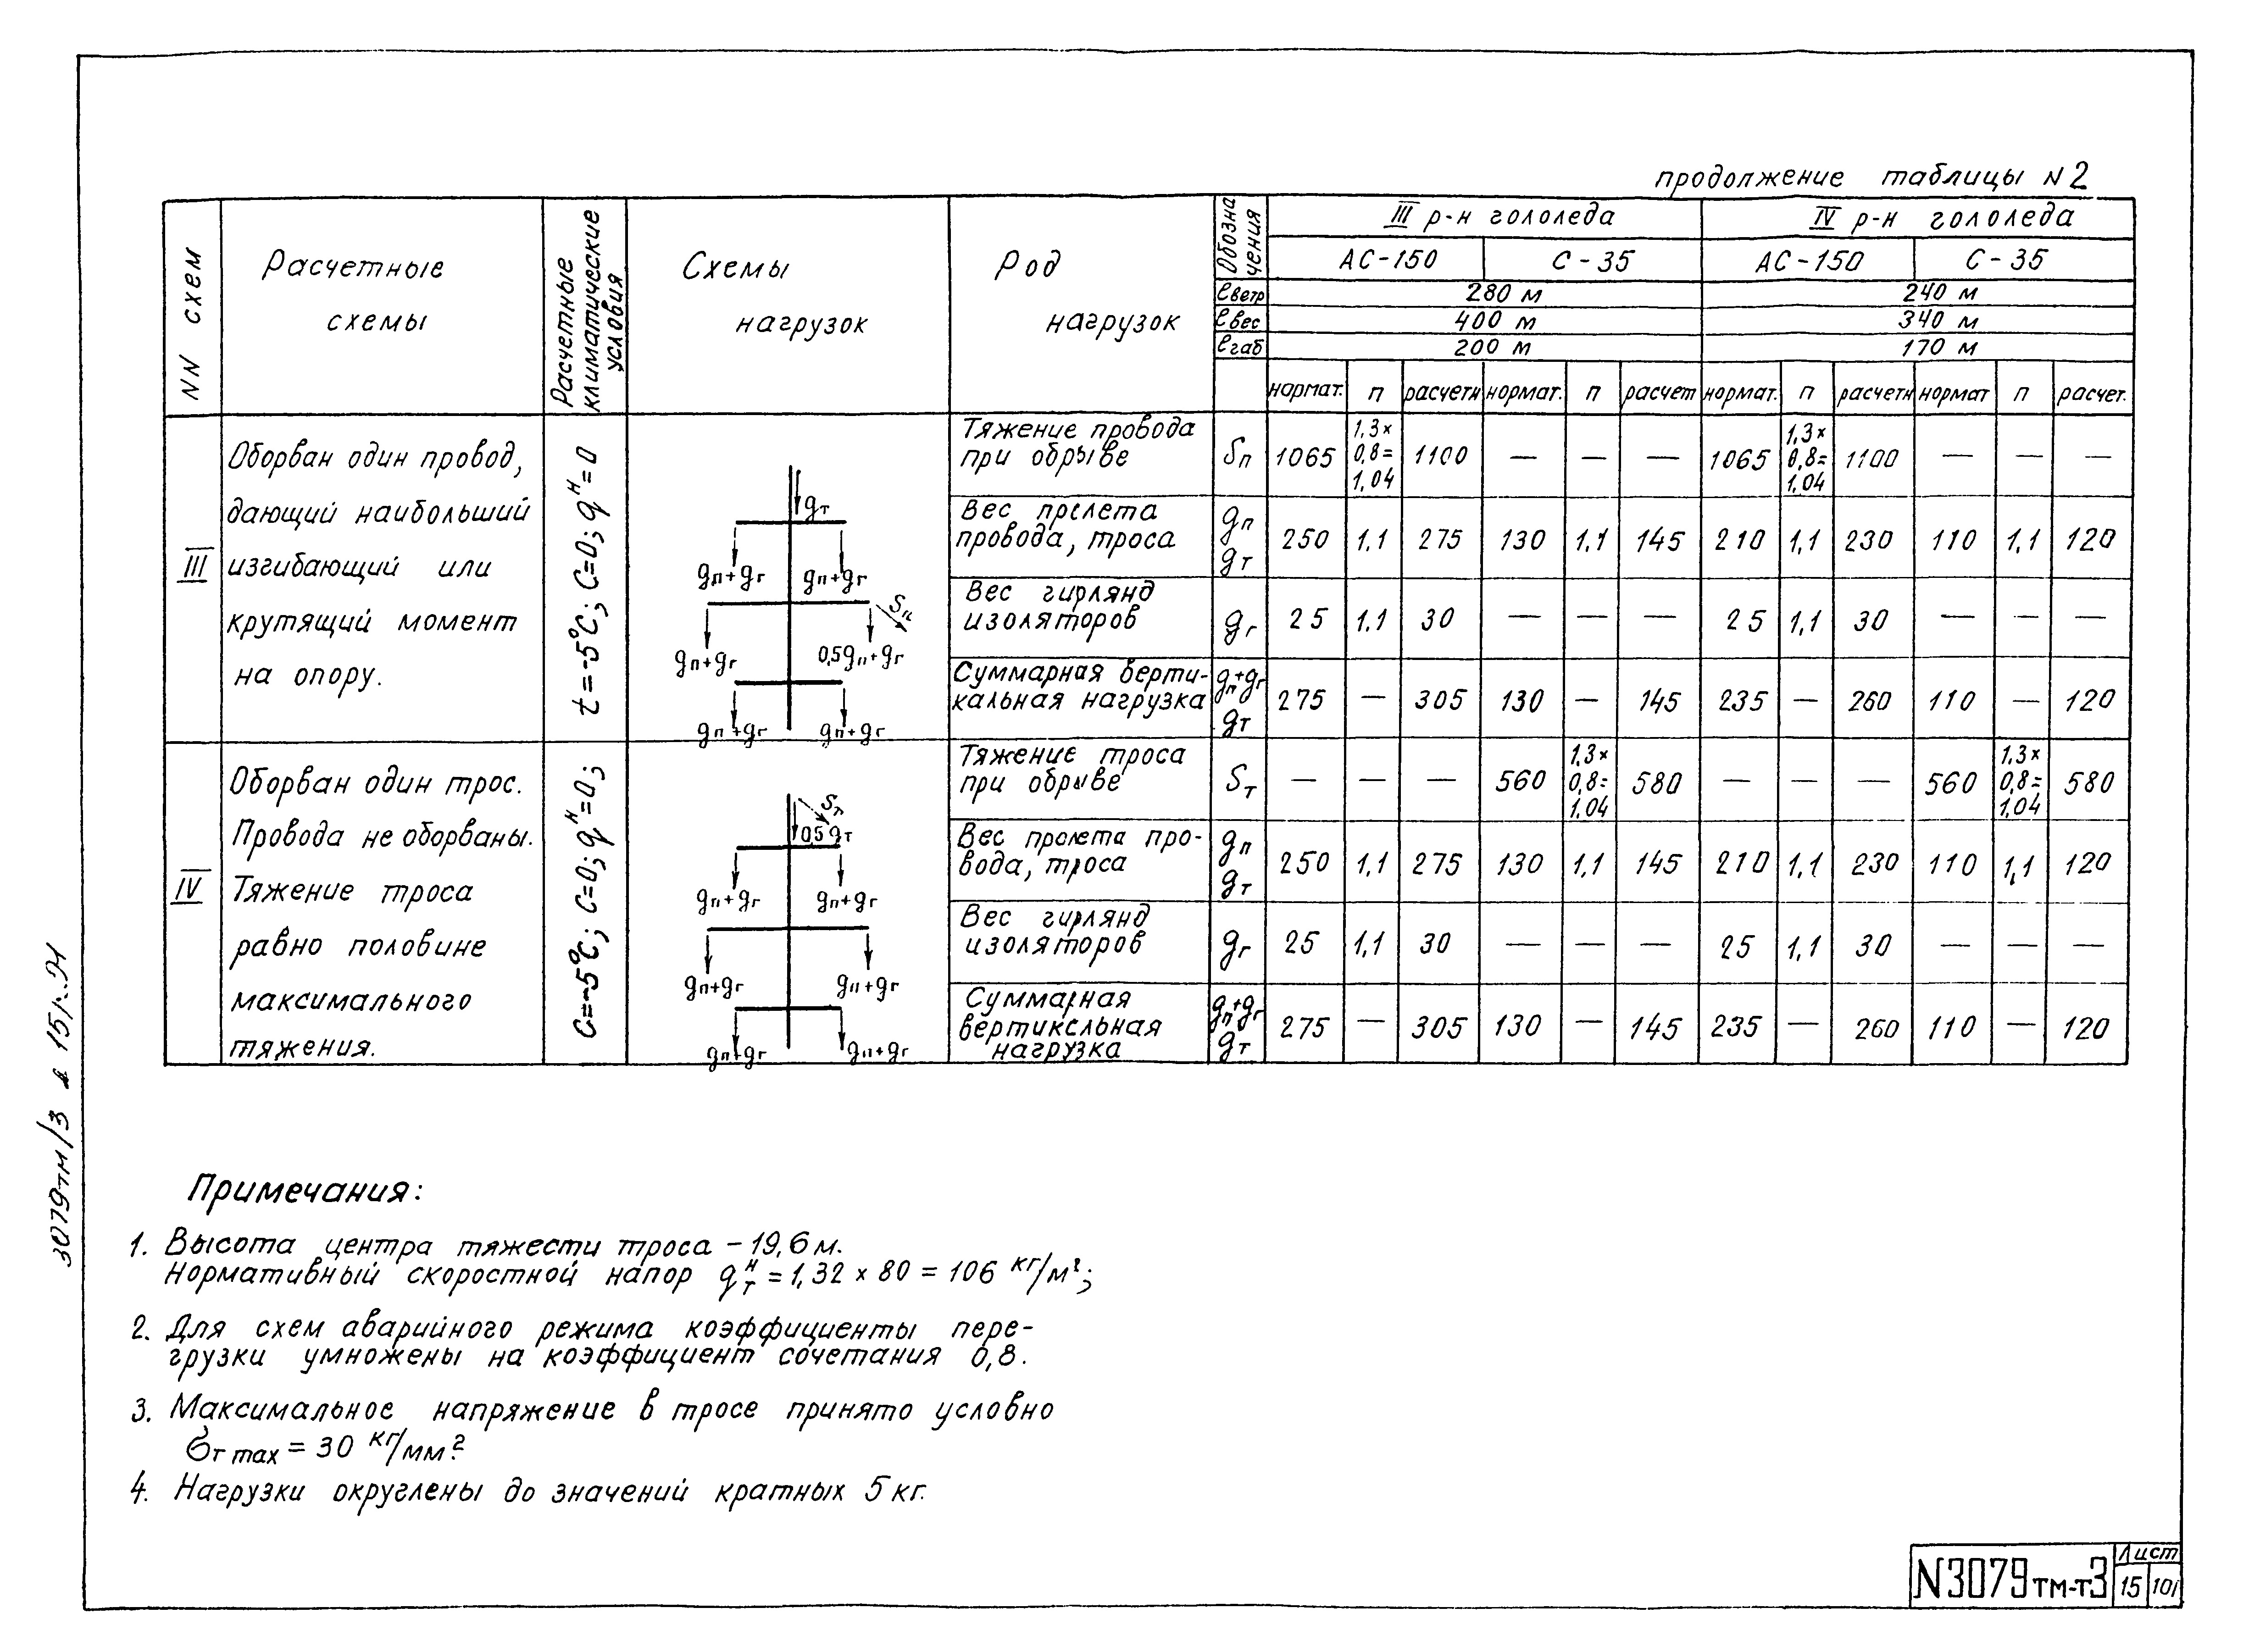 продолжение таблицы N 2
NN схем
Расчетные
схемы
Расчетные
климатические
условия
Схемы
нагрузок
Род
нагрузок
Обозна
чения
III р-н гололеда
IV р-н гололеда
АС-150
С-35
АС-150
С-35
ℓветр
280 м
240 м
ℓвес
400 м
340 м
ℓгаб
200 м
170 м
нормат. п расчетн нормат. п расчет нормат. п расчетн нормат п расчет.
III
Оборван один провод,
дающий наибольший
изгибающий или
крутящий момент
на опору.
t=-5°C; C=0; qᴴ=0
gт
gп+gг gп+gг
Sп
gп+gг 0,5gп+gг
gп+gг gп+gг
Тяжение провода
при обрыве
Sп 1065 1,3× 0,8= 1,04 1100 — — — 1065 1,3× 0,8= 1,04 1100 — — —
Вес пролета
провода, троса
gп gт 250 1.1 275 130 1,1 145 210 1,1 230 110 1,1 120
Вес гирлянд
изоляторов
gг 25 1.1 30 — — — 25 1,1 30 — — —
Суммарная верти-
кальная нагрузка
gп+gг gт 275 — 305 130 — 145 235 — 260 110 — 120
IV
Оборван один трос.
Провода не оборваны.
Тяжение троса
равно половине
максимального
тяжения.
C=-5°C; C=0; qᴴ=0;
Sт
0,5 gт
gп+gг gп+gг
gп+gг gп+gг
gп+gг gп+gг
Тяжение троса
при обрыве
Sт — — — 560 1,3× 0,8= 1,04 580 — — — 560 1,3× 0,8= 1,04 580
Вес пролета про-
вода, троса
gп gт 250 1,1 275 130 1,1 145 210 1,1 230 110 1,1 120
Вес гирлянд
изоляторов
gг 25 1,1 30 — — — 25 1,1 30 — — —
Суммарная
вертикальная
нагрузка
gп+gг gт 275 — 305 130 — 145 235 — 260 110 — 120
Примечания:
1. Высота центра тяжести троса – 19,6 м.
Нормативный скоростной напор qтᴴ = 1,32 × 80 = 106 кг/м²;
2. Для схем аварийного режима коэффициенты пере-
грузки умножены на коэффициент сочетания 0,8.
3. Максимальное напряжение в тросе принято условно
σт max = 30 кг/мм²
4. Нагрузки округлены до значений кратных 5 кг.
N3079тм-т3
Лист
15 101
3079тм/3 л 15